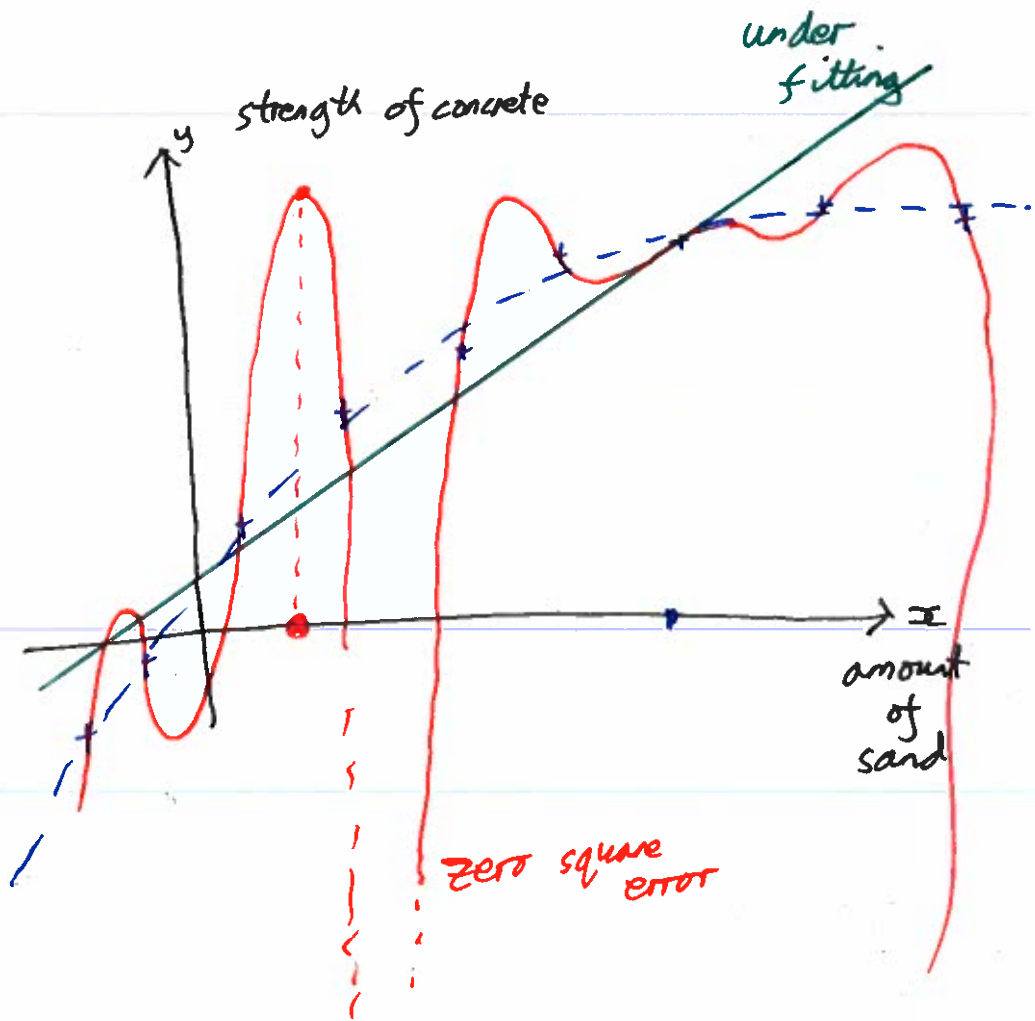 under
fitting
strength of concrete
y
x
amount
of
sand
zero square
error